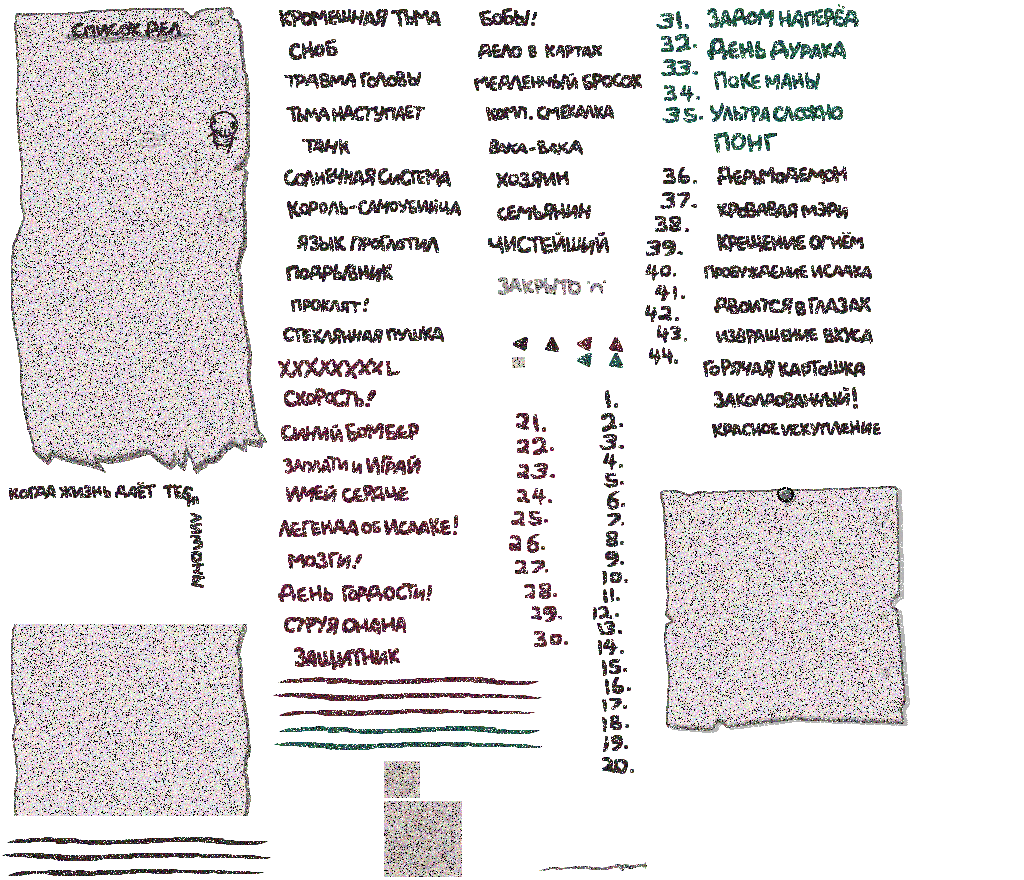 СПИСОК ДЕЛ
КОГДА ЖИЗНЬ ДАЁТ ТЕБЕ
ЛИМОНЫ
КРОМЕШНАЯ ТЬМА
СНОБ
ТРАВМА ГОЛОВЫ
ТЬМА НАСТУПАЕТ
ТАНК
СОЛНЕЧНАЯ СИСТЕМА
КОРОЛЬ-САМОУБИЙЦА
ЯЗЫК ПРОГЛОТИЛ
ПОДРЫВНИК
ПРОКЛЯТ!
СТЕКЛЯННАЯ ПУШКА
XXXXXXXXL
СКОРОСТЬ!
СИНИЙ БОМБЕР
ЗАПЛАТИ И ИГРАЙ
ИМЕЙ СЕРДЦЕ
ЛЕГЕНДА ОБ ИСААКЕ!
МОЗГИ!
ДЕНЬ ГОРДОСТИ!
СТРУЯ ОНАНА
ЗАЩИТНИК
БОБЫ!
ДЕЛО В КАРТАХ
МЕДЛЕННЫЙ БРОСОК
КОМП. СМЕКАЛКА
ВАКА-ВАКА
ХОЗЯИН
СЕМЬЯНИН
ЧИСТЕЙШИЙ
ЗАКРЫТО
21.
22.
23.
24.
25.
26.
27.
28.
29.
30.
1.
2.
3.
4.
5.
6.
7.
8.
9.
10.
11.
12.
13.
14.
15.
16.
17.
18.
19.
20.
31.
32.
33.
34.
35.
36.
37.
38.
39.
40.
41.
42.
43.
44.
ЗАДОМ НАПЕРЁД
ДЕНЬ ДУРАКА
ПОКЕ МАНЫ
УЛЬТРА СЛОЖНО
ПОНГ
ДЕРЬМОДЕМОН
КРОВАВАЯ МЭРИ
КРЕЩЕНИЕ ОГНЁМ
ПРОБУЖДЕНИЕ ИСААКА
ДВОИТСЯ В ГЛАЗАХ
ИЗВРАЩЕНИЕ ВКУСА
ГОРЯЧАЯ КАРТОШКА
ЗАКОЛДОВАННЫЙ!
КРАСНОЕ ИСКУПЛЕНИЕ